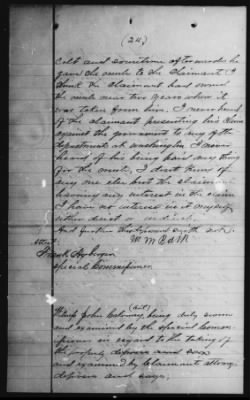 (24)
colt and sometime afterwards he
gave the mule to the claimant I
think the claimant had owned
the mule near two years when it
was taken from him. I never heard
of the claimant presenting his claim
against the government to any of the
departments at Washington I never
heard of his being paid any thing
for the mule, I don't know of
any one else but the claimant
having any interest in the claim
I have no interest in it myself
either direct or indirect.
And further this deponent saith not.
Attest
Frank
Special Commissioner
John being duly sworn
and examined by the special Commis-
sioner in regard to the taking of
the property deposes and says
and examined by Claimants attorney
deposes and says;